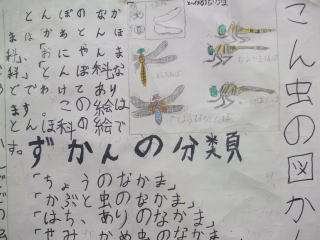 こん虫の図か
とんぼのなか
科」「おにやんま
科」「とんぼ科な
どでわけてあり
ます。この絵は
とんぼ科の絵で
す。
ずかんの分類
「ちょうのなかま」
「かぶと虫のなかま」
「はち、ありのなかま」
「せみ、かめ虫のなかま」